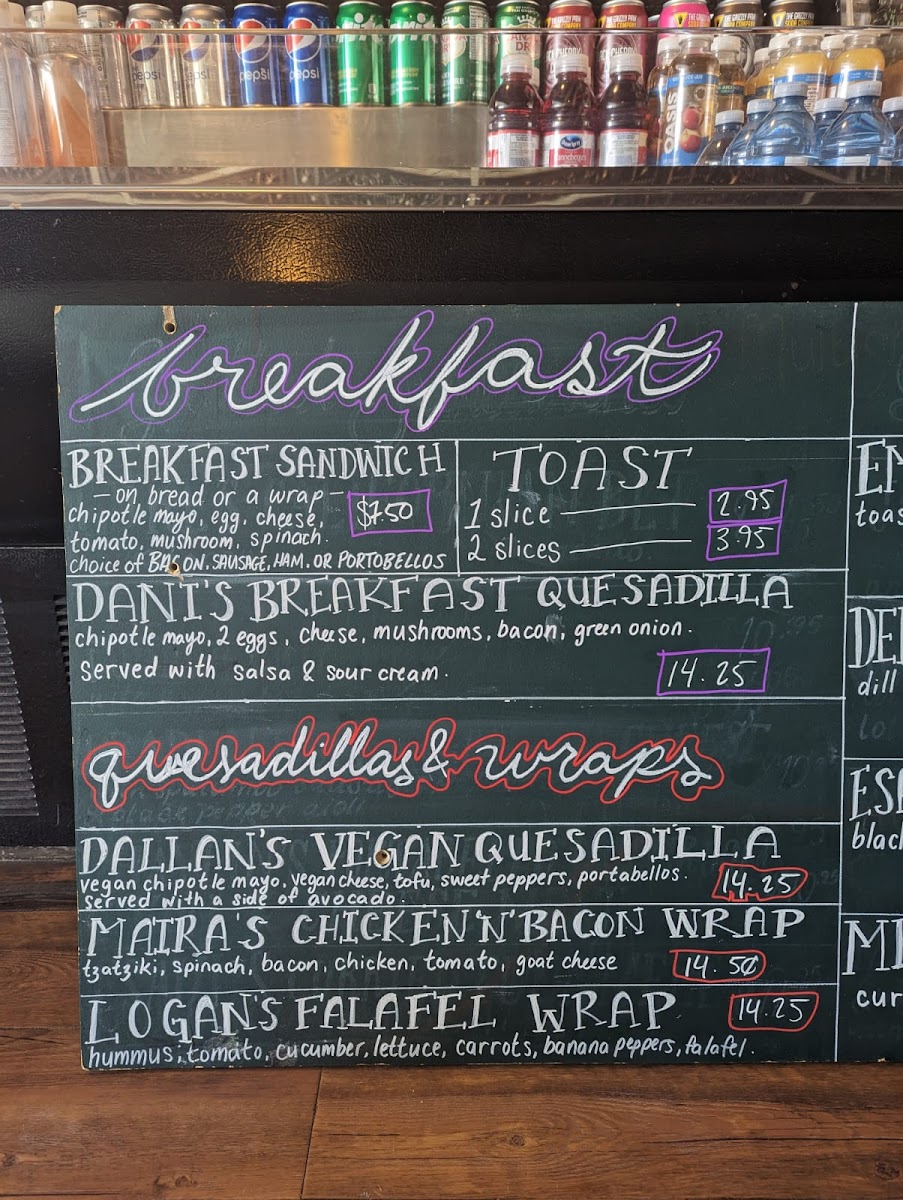 pepsi
pepsi
pepsi
pepsi
OASIS
breakfast
BREAKFAST SANDWICH
— on bread or a wrap —
chipotle mayo, egg, cheese,
tomato, mushroom, spinach.
choice of BACON, SAUSAGE, HAM, OR PORTOBELLOS
$7.50
TOAST
1 slice 2.95
2 slices 3.95
DANI'S BREAKFAST QUESADILLA
chipotle mayo, 2 eggs, cheese, mushrooms, bacon, green onion.
Served with salsa & sour cream.
14.25
quesadillas & wraps
DALLAN'S VEGAN QUESADILLA
vegan chipotle mayo, vegan cheese, tofu, sweet peppers, portabellos.
served with a side of avocado.
14.25
MAIRA'S CHICKEN 'N' BACON WRAP
tzatziki, spinach, bacon, chicken, tomato, goat cheese
14.50
LOGAN'S FALAFEL WRAP 14.25
hummus, tomato, cucumber, lettuce, carrots, banana peppers, falafel.
toas
dill
ESP
black
cur